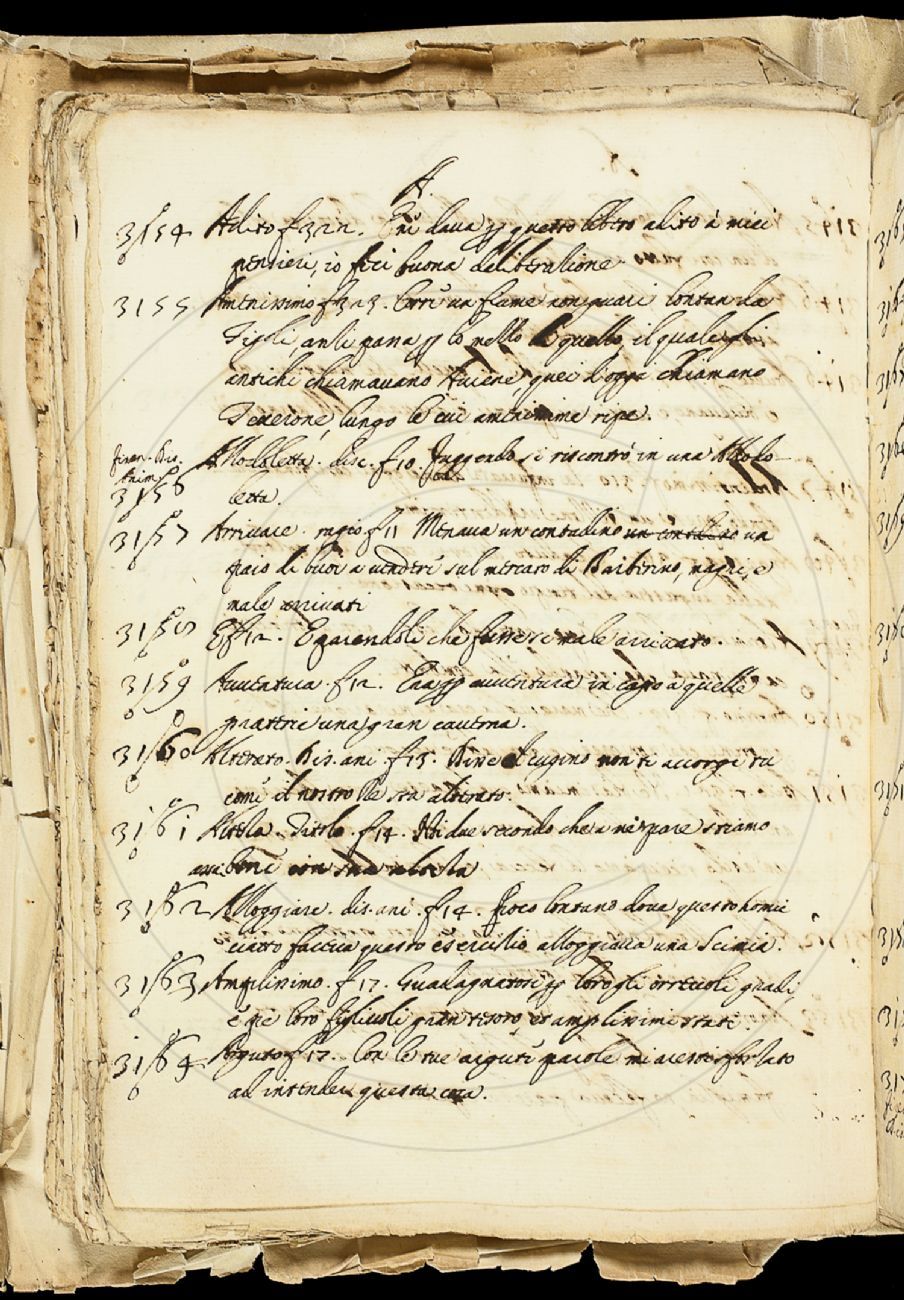 A.
3154 Adito f 321. E si dava per questo libero adito à miei
pensieri, io feci buona deliberatione
3155 Amenissimo f 323. Corre un fiume non guari lontan da
Tigoli, anzi passa per lo mezzo di quello, il quale gli
antichi chiamavano Aniene, quei d'oggi chiamano
Teverone, lungo le cui amenissime ripe.
Firen. Dis.
Anim.
3156 Allodoletta. disc. f 10. Fuggendo si riscontrò in una Allodo
letta.
3157 Arrivare. ragio f 11 Menava un contadino un contadino un
paio di buoi a vendere sul mercato di Barberino, magri, e
male arrivati
3158 E f 12. E parendoli che fussero male arrivato.
3159 Avventura. f 12. Era per avventura in capo a quelle
praterie una gran caverna.
3160 Alterato. Dis. ani f 13. Bene cugino non ti accorgi tu
come il nostro Re sta alterato.
3161 f 14. Noi due secondo che a me pare stiamo
assai bene con sua
3162 Alloggiare. dis. ani. f 14. Poco lontano dova questo homi
ciatto faceva questo esercitio alloggiava una Scimia.
3163 Amplissimo. f 17. Guadagnatosi per loro gli orrevoli gradi,
e pe' loro figlivoli gran tesoro, et amplissimi stati.
3164 Arguto f 17. Con le tue argute parole mi avesti sforzato
ad intender questa cosa.